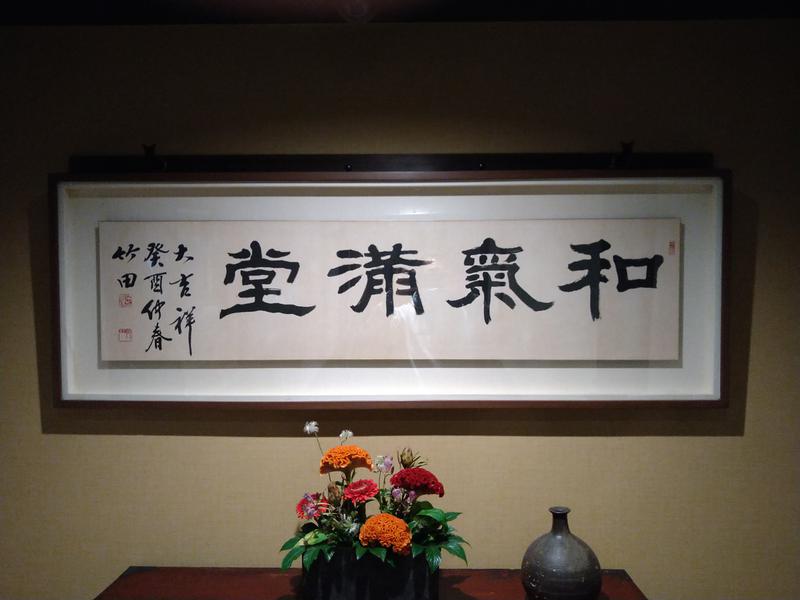 和氣滿堂
大吉祥
癸酉仲春
竹田